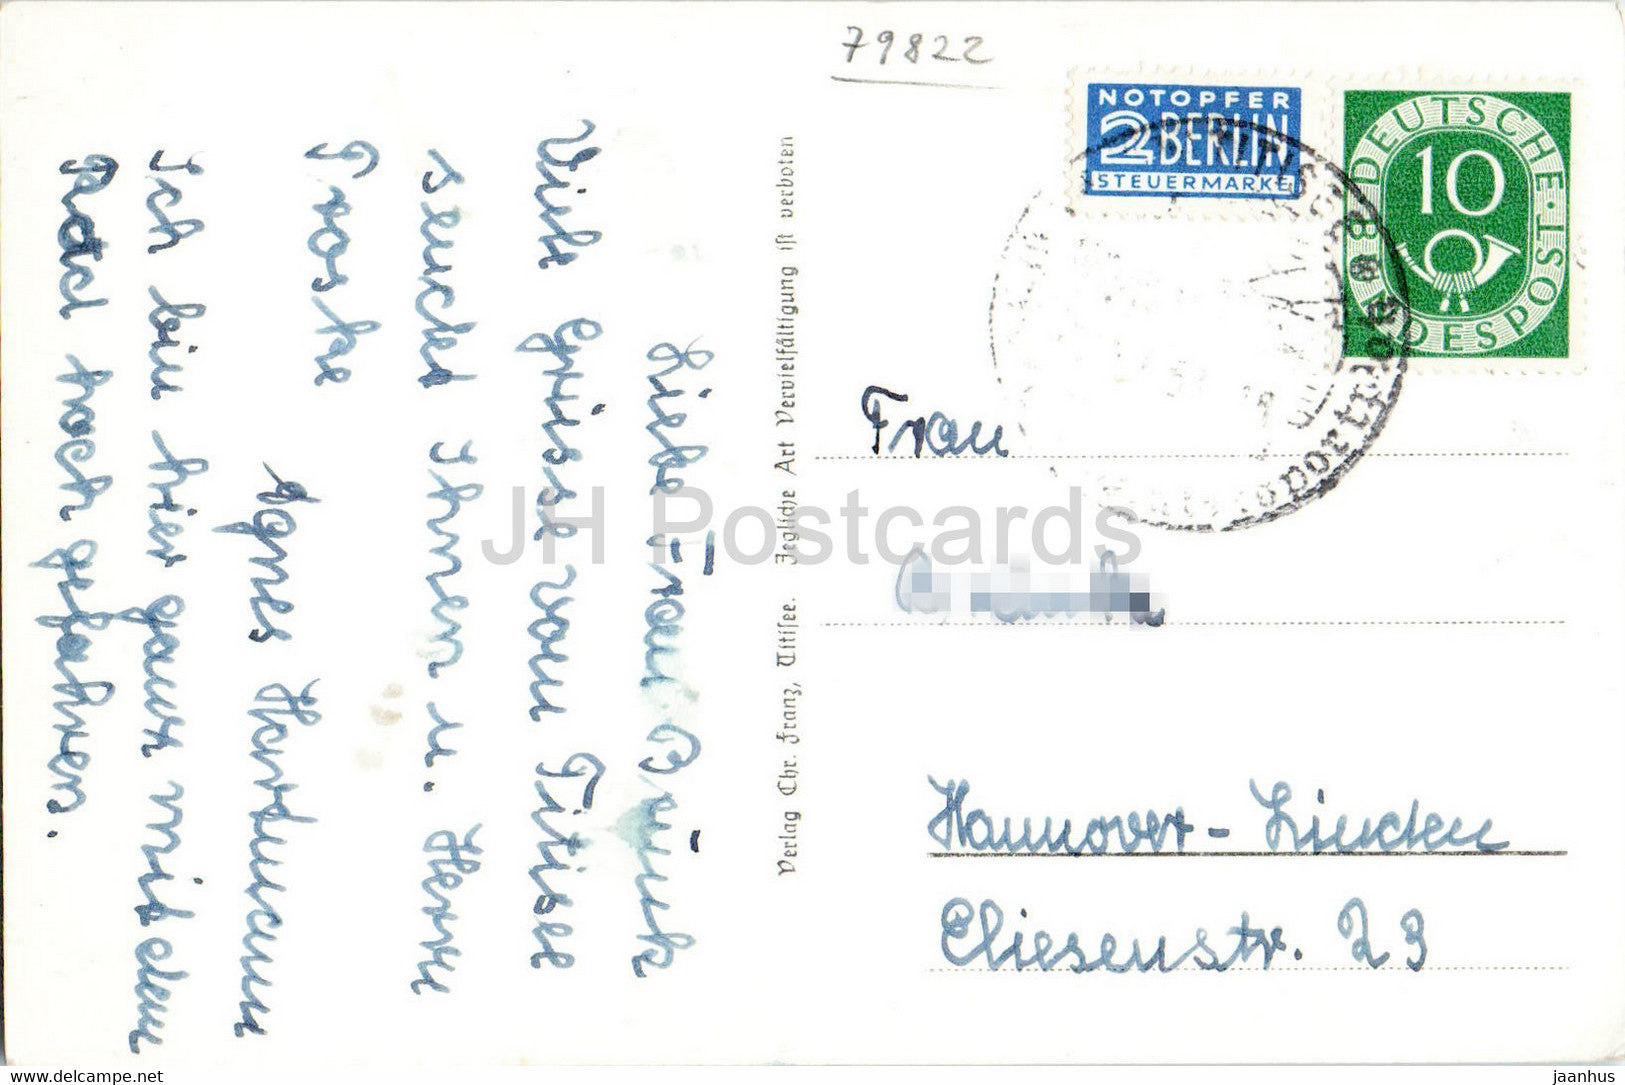 79822
NOTOPFER
2 BERLIN
STEUERMARKE
DEUTSCHE BUNDESPOST
10
TITISEE
Liebe Frau
Viele Grüsse vom Titisee
sendet Ihnen u. Herrn
Agnes
Ich bin hier ganz mit dem
Rad hoch gefahren.
Verlag Chr. Franz, Titisee. Jegliche Art Vervielfältigung ist verboten
Frau
Hannover-Linden
Eliesenstr. 23
JH Postcards
delcampe.net
jaanhus